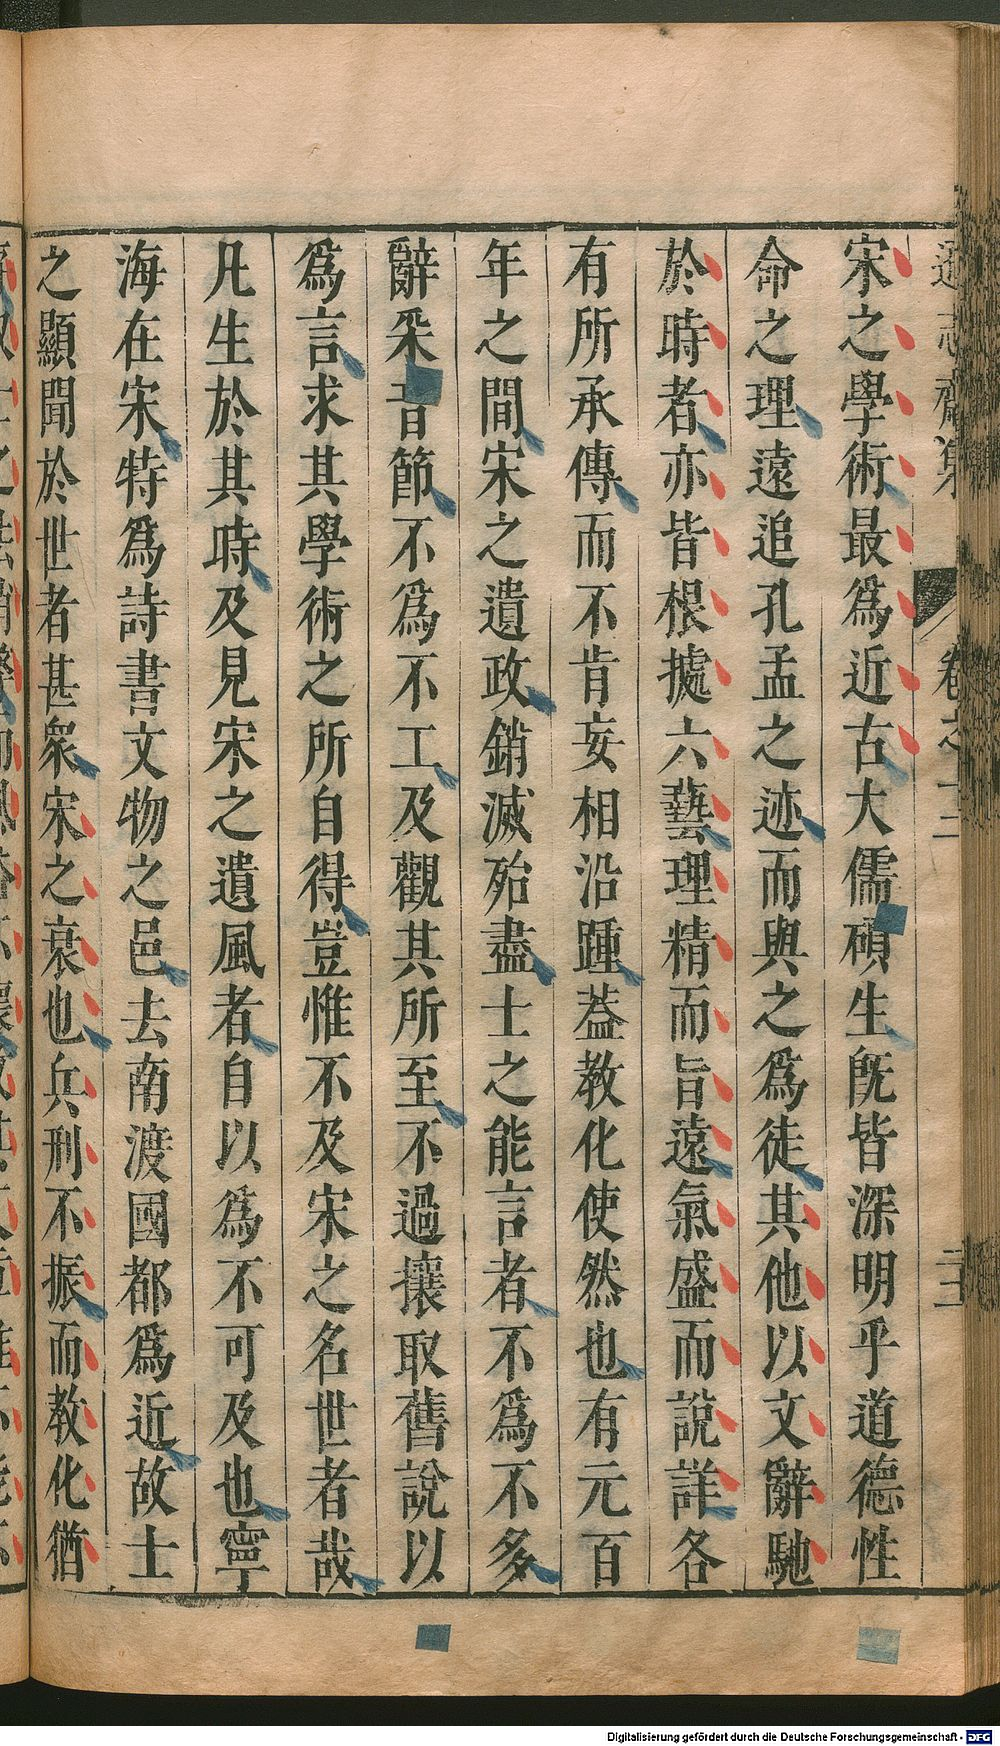 遜志齋集 卷之十二 二十
宋之學術最爲近古大儒碩生旣皆深明乎道德性
命之理遠追孔孟之迹而與之爲徒其他以文辭馳
於時者亦皆根據六藝理精而旨遠氣盛而說詳各
有所承傳而不肯妄相沿踵葢教化使然也有元百
年之間宋之遺政銷滅殆盡士之能言者不爲不多
辭采音節不爲不工及觀其所至不過攘取舊說以
爲言求其學術之所自得豈惟不及宋之名世者哉
凡生於其時及見宋之遺風者自以爲不可及也寧
海在宋特爲詩書文物之邑去南渡國都爲近故士
之顯聞於世者甚衆宋之衰也兵刑不振而教化猶
Digitalisierung gefördert durch die Deutsche Forschungsgemeinschaft - DFG